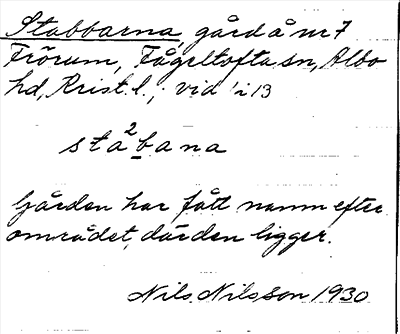 Stabbarna, gård å nr 7
Frörum, Fågeltofta sn, Albo
hd, Krist. l.; vid 'i 13
sta²bana
Gården har fått namn efter
området, där den ligger.
Nils Nilsson 1930